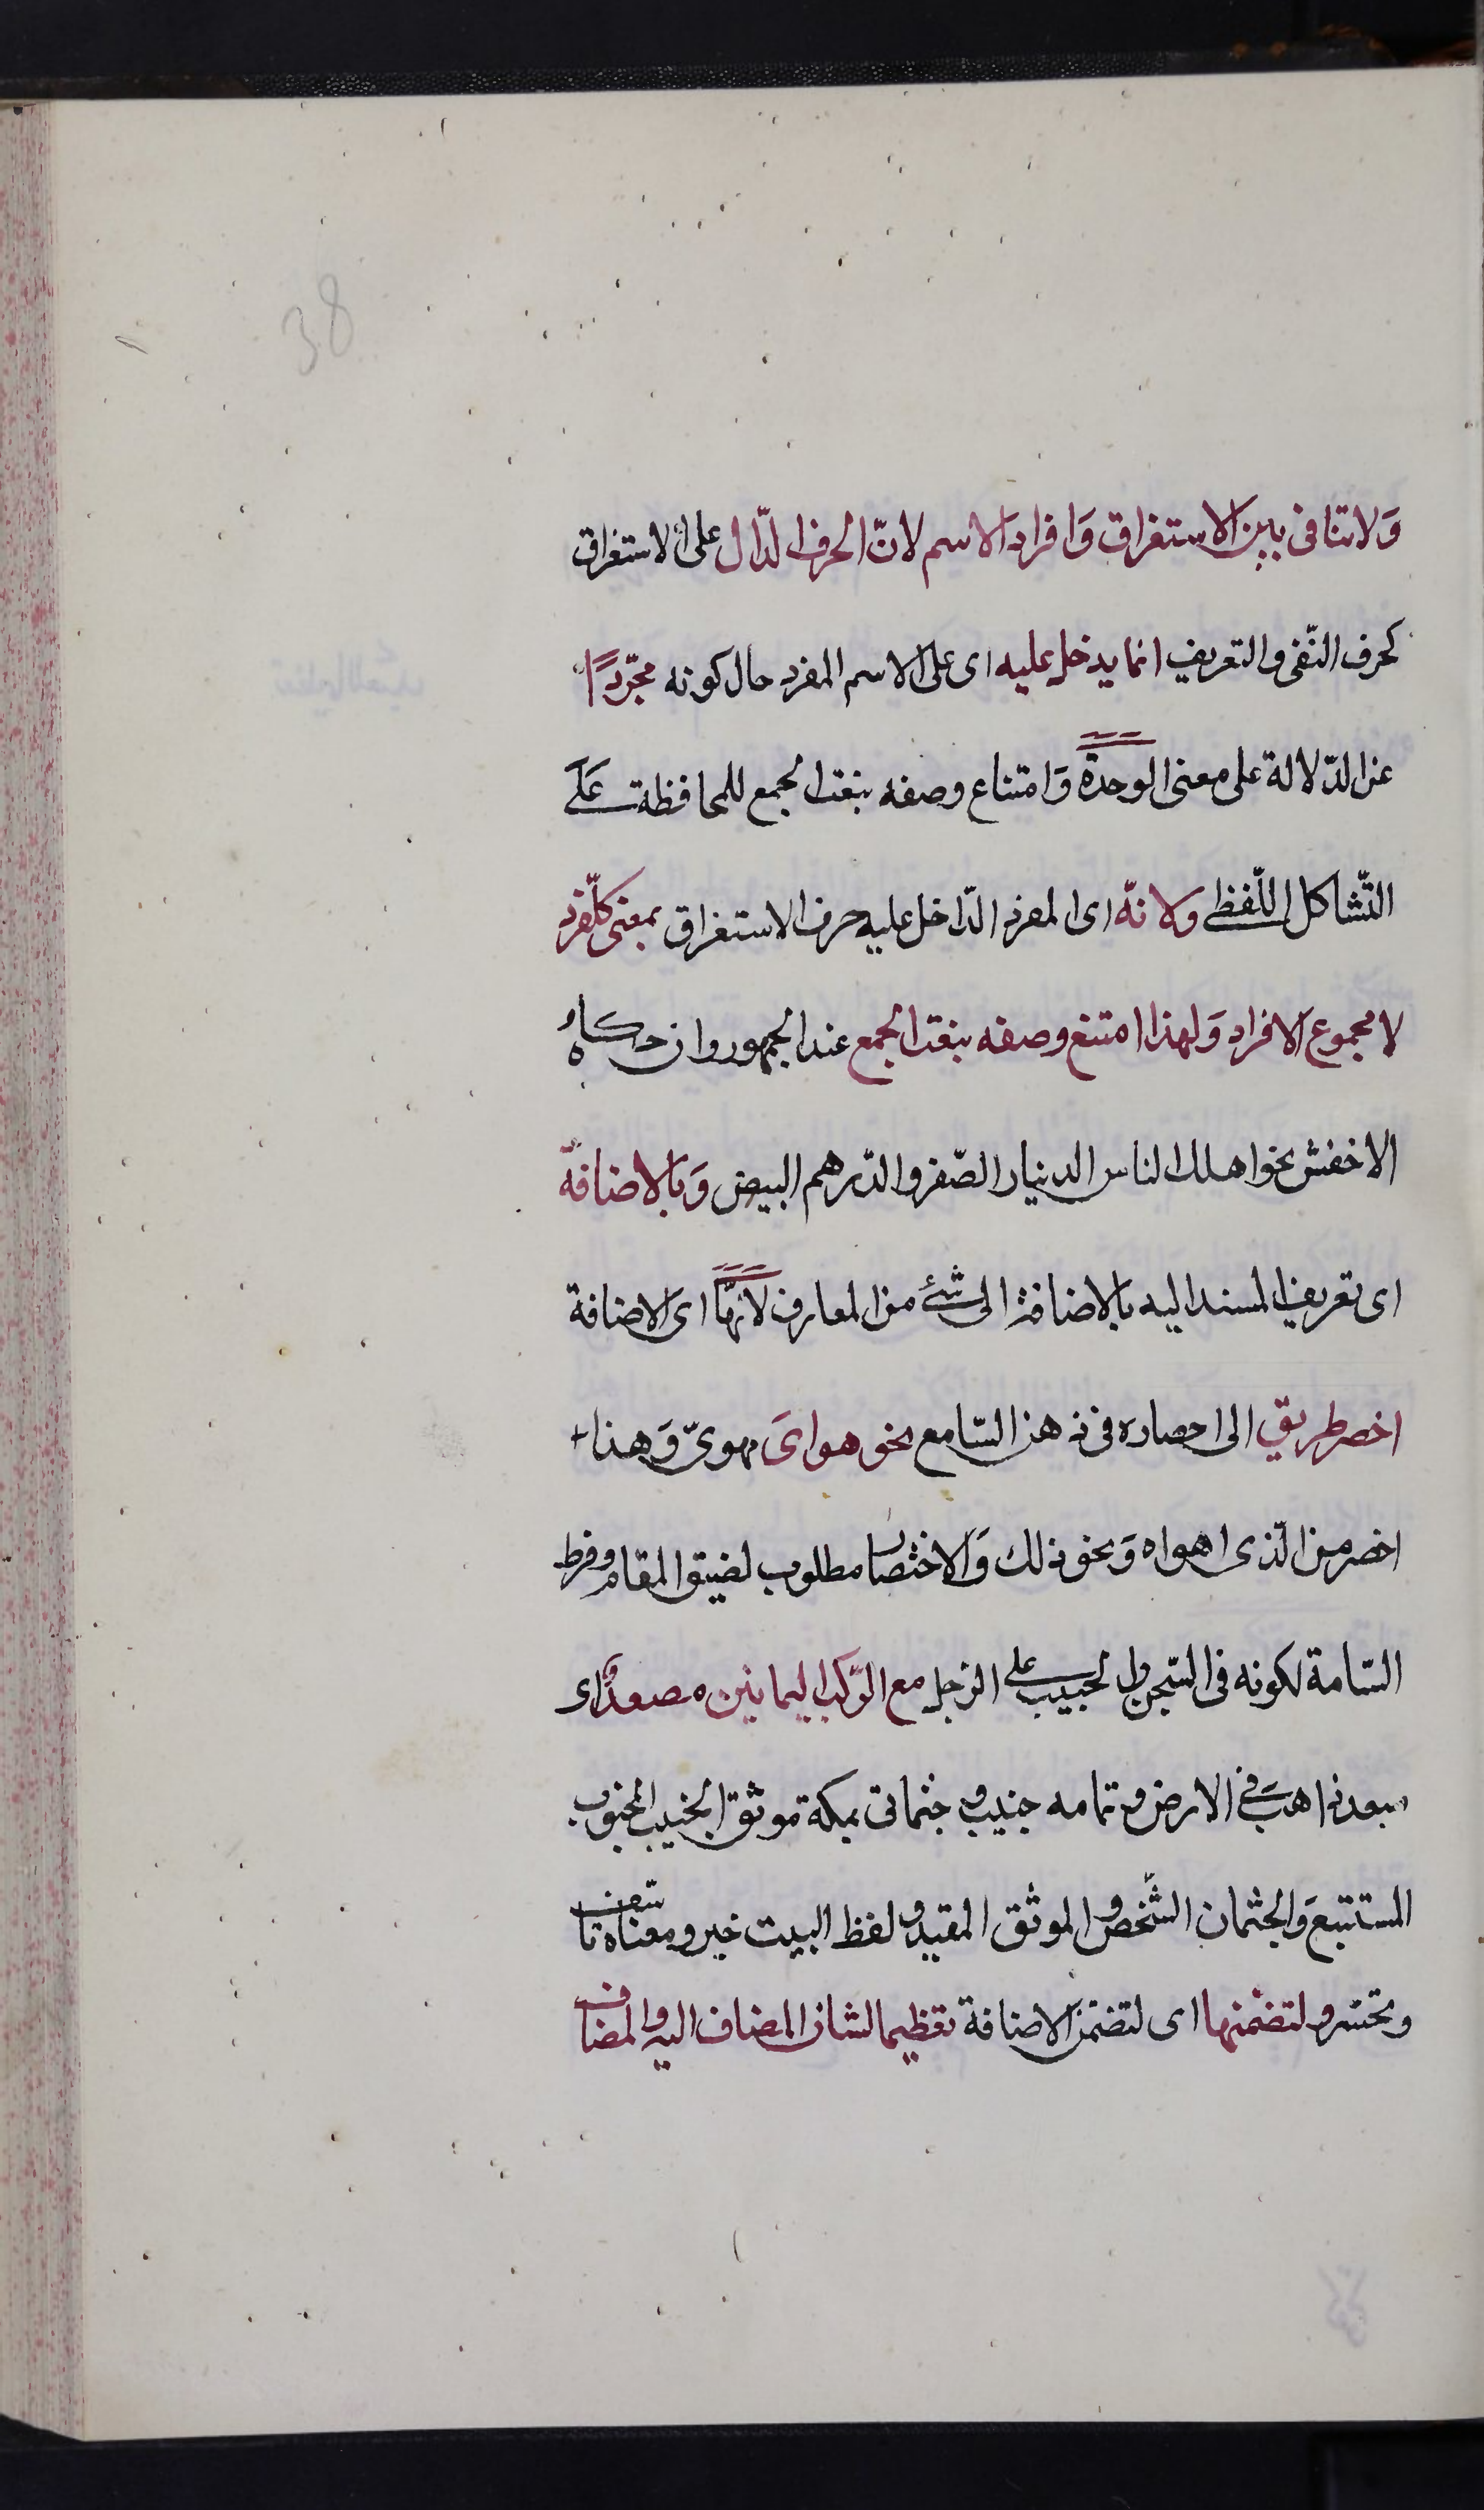 38
وَلا تنافى بين الاستغراق وَافراد الاسم لانّ الحرف الدّال على الاستغراق
كحرف النّفى والتعريف انما يدخل عليه اى على الاسم المفرد حال كونه مجّردًا
عن الدّلالة على معنى الوحدة وَامتناع وصفه بنعت الجمع للمحافظة عَلَى
التّشاكل اللّفظى ولانّه اى المفرد الدّاخل عليه حرف الاستغراق بمعنى كلّ فرد
لا مجموع الافراد وَلهذا امتنع وصفه بنعت الجمع عند الجمهور وان حكاه
الاخفش نحو اهلك الناس الدنيار الصّفر والدّرهم البيض وَبالاضافة
اى تعريف المسند اليه بالاضافة الى شئ من المعارف لأنهّا اى الاضافة
اخصر طريق الى احصاره فى ذهن السّامع نحو هواىَ مهوىّ وَهذا
اخصر من الّذى اهواه وَنحو ذلك وَالاختصار مطلوب لضيق المقام وفرط
السّامة لكونه فى السّجن والحبيب على الرّحل مع الرّكب اليمانين مصعدٌ اى
مبعد ذاهبَ فى الارض وتمامه جنيب وجثمانى بمكة موثق الجنيب المجنوب
المستتبعَ وَالجثمان الشّخص والموثق المقيد ولفظ البيت خبر ومعناه تاسّف
وتحسّر ولتضمّنها اى لتضمّن الاضافة تعظيما لشان المضاف اليه والمضاف